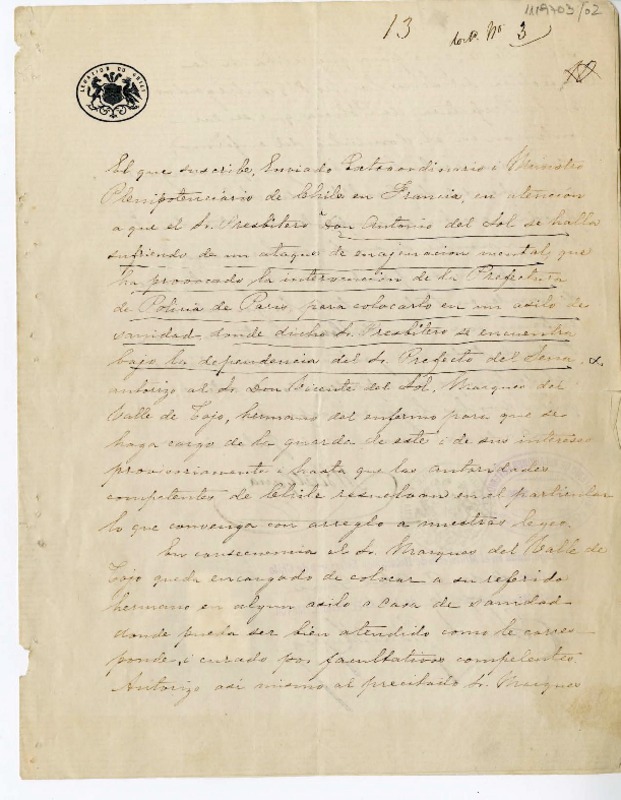 1119703/02
13
Nº 3
LEGACION DE CHILE
El que suscribe, Enviado Extraordinario i Ministro
Plenipotenciario de Chile en Francia, en atencion
a que el Sr. Presbítero Don Antonio del Sol se halla
sufriendo de un ataque de enajenacion mental, que
ha provocado la intervencion de la Prefectura
de Policia de Paris, para colocarlo en un asilo de
sanidad donde dicho Sr. Presbítero se encuentra
bajo la dependencia del Sr. Prefecto del Sena,
autorizo al Sr. Don Vicente del Sol, Marques del
Valle de Tojo, hermano del enfermo para que se
haga cargo de la guarda de este i de sus intereses
provisoriamente i hasta que las autoridades
competentes de Chile resuelvan en el particular
lo que convenga con arreglo a nuestras leyes.
En consecuencia el Sr. Marques del Valle de
Tojo queda encargado de colocar a su referido
hermano en algun asilo o casa de sanidad
donde pueda ser bien atendido como le corres-
ponde, i curado por facultativos competentes.
Autorizo asi mismo al precitado Sr. Marques